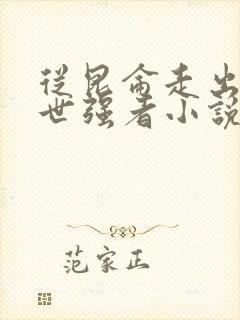 從昆侖走出
世强者小說
范家正